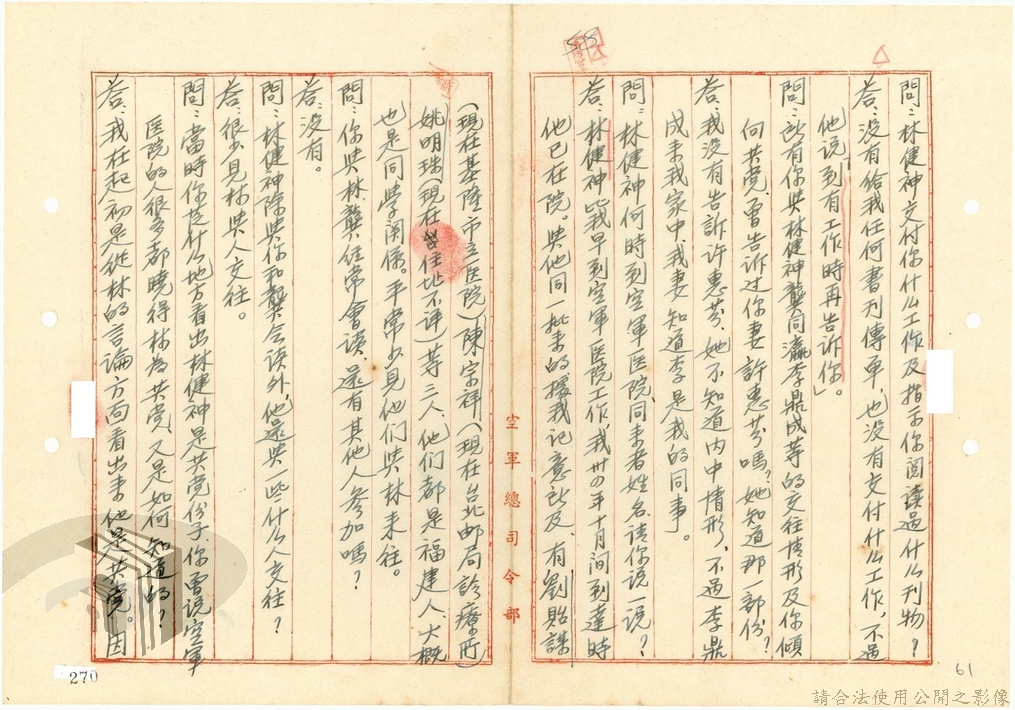 問：林健神交付你什么工作及指示你閱讀過什么刊物？
答：沒有給我任何書刊傳單，也沒有交付什么工作，不過
他說「到有工作時再告訴你」。
問：所有你與林健神龔同瀛李鼎成等的交往情形及你傾
向共党，曾告訴过你妻許惠芬嗎？她知道那一部份？
答：我沒有告訴許惠芬，她不知道内中情形，不過李鼎
成來我家中，我妻知道李是我的同事。
問：林健神何時到空軍医院，同來者姓名請你說一說？
答：林健神比我早到空軍医院工作，我卅四年十月間到達時
他已在院。與他同一批來的據我记意所及，有劉貽謀
（現在基隆市立医院）陳宗祥（現在台北邮局診療所）
姚明珠（現在住址不詳）等三人，他们都是福建人，大概
也是同學関係。平常少見他们與林來往。
問：你與林、龔经常會談，还有其他人參加嗎？
答：沒有。
問：林健神除與你和龔会谈外，他還與一些什么人交往？
答：很少見林與人交往。
問：當時你從什么地方看出林健神是共党份子，你曾说空軍
医院的人很多都曉得林為共党，又是如何知道的？
答：我在起初是從林的言論方面看出來他是共党。因
空軍總司令部
270
61
請合法使用公開之影像